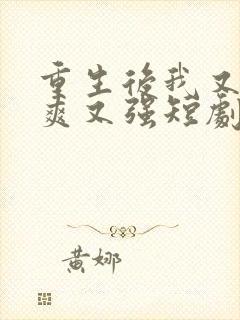 重生後我又
爽又強短劇
黃娜